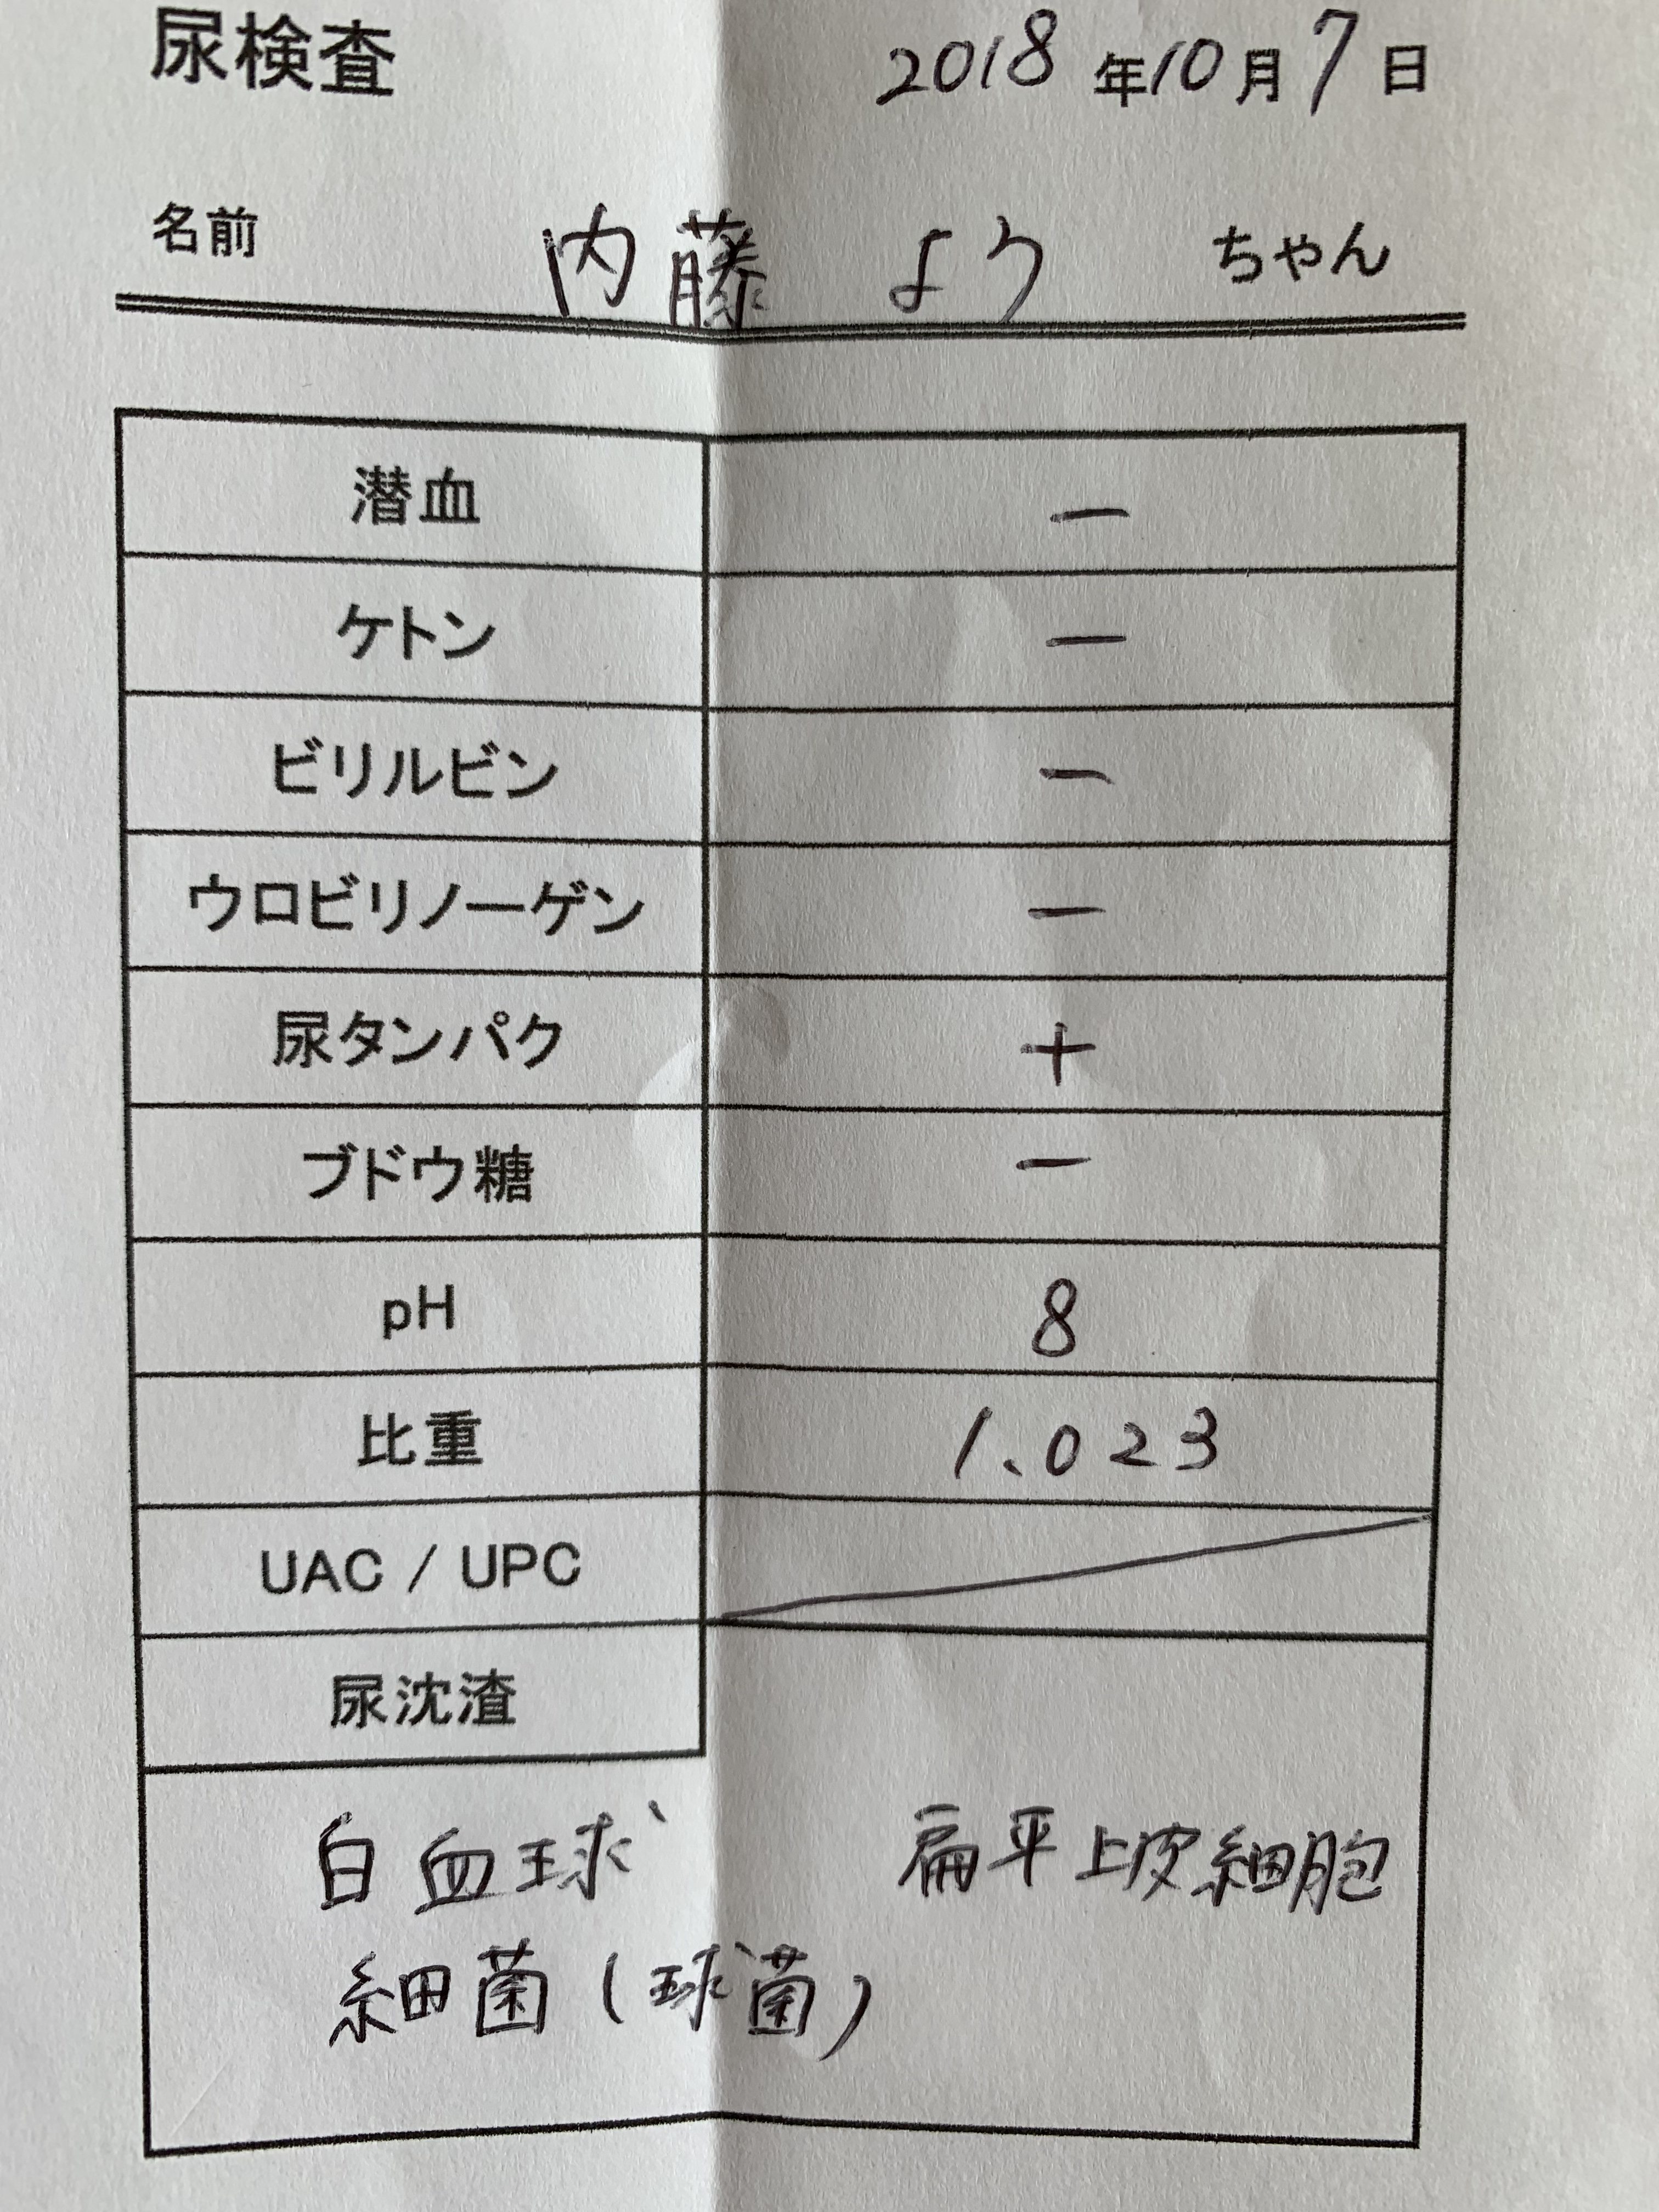 尿検査 2018年10月7日
名前 内藤 より ちゃん
潜血 −
ケトン −
ビリルビン −
ウロビリノーゲン −
尿タンパク +
ブドウ糖 −
pH 8
比重 1.023
UAC / UPC
尿沈渣
白血球 扁平上皮細胞
細菌(球菌)